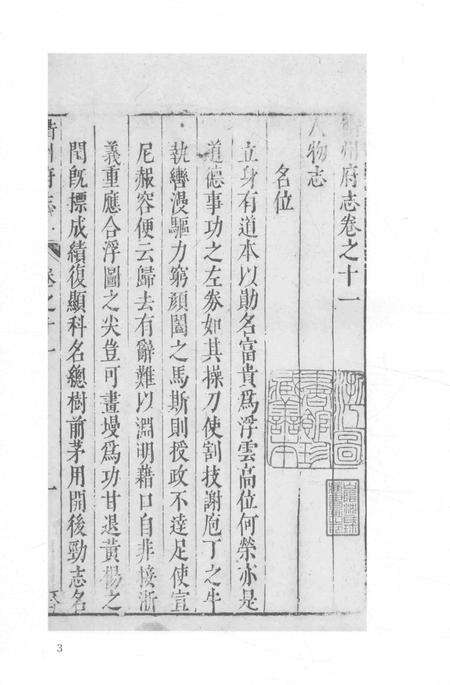 衢州府志卷之十一
人物志
名位
立身有道本以勛名富貴為浮雲高位何榮亦是
道德事功之左券如其操刀使割技謝庖丁之牛
執轡漫驅力窮顏闔之馬斯則授政不達足使宣
尼赧容便云歸去有辭難以淵明藉口自非接淅
義重應合浮圖之尖豈可畫墁為功甘退黃楊之
閏旣摽成績復顯科名總樹前茅用開後勁志名
衢州府志
卷之十一
一
3